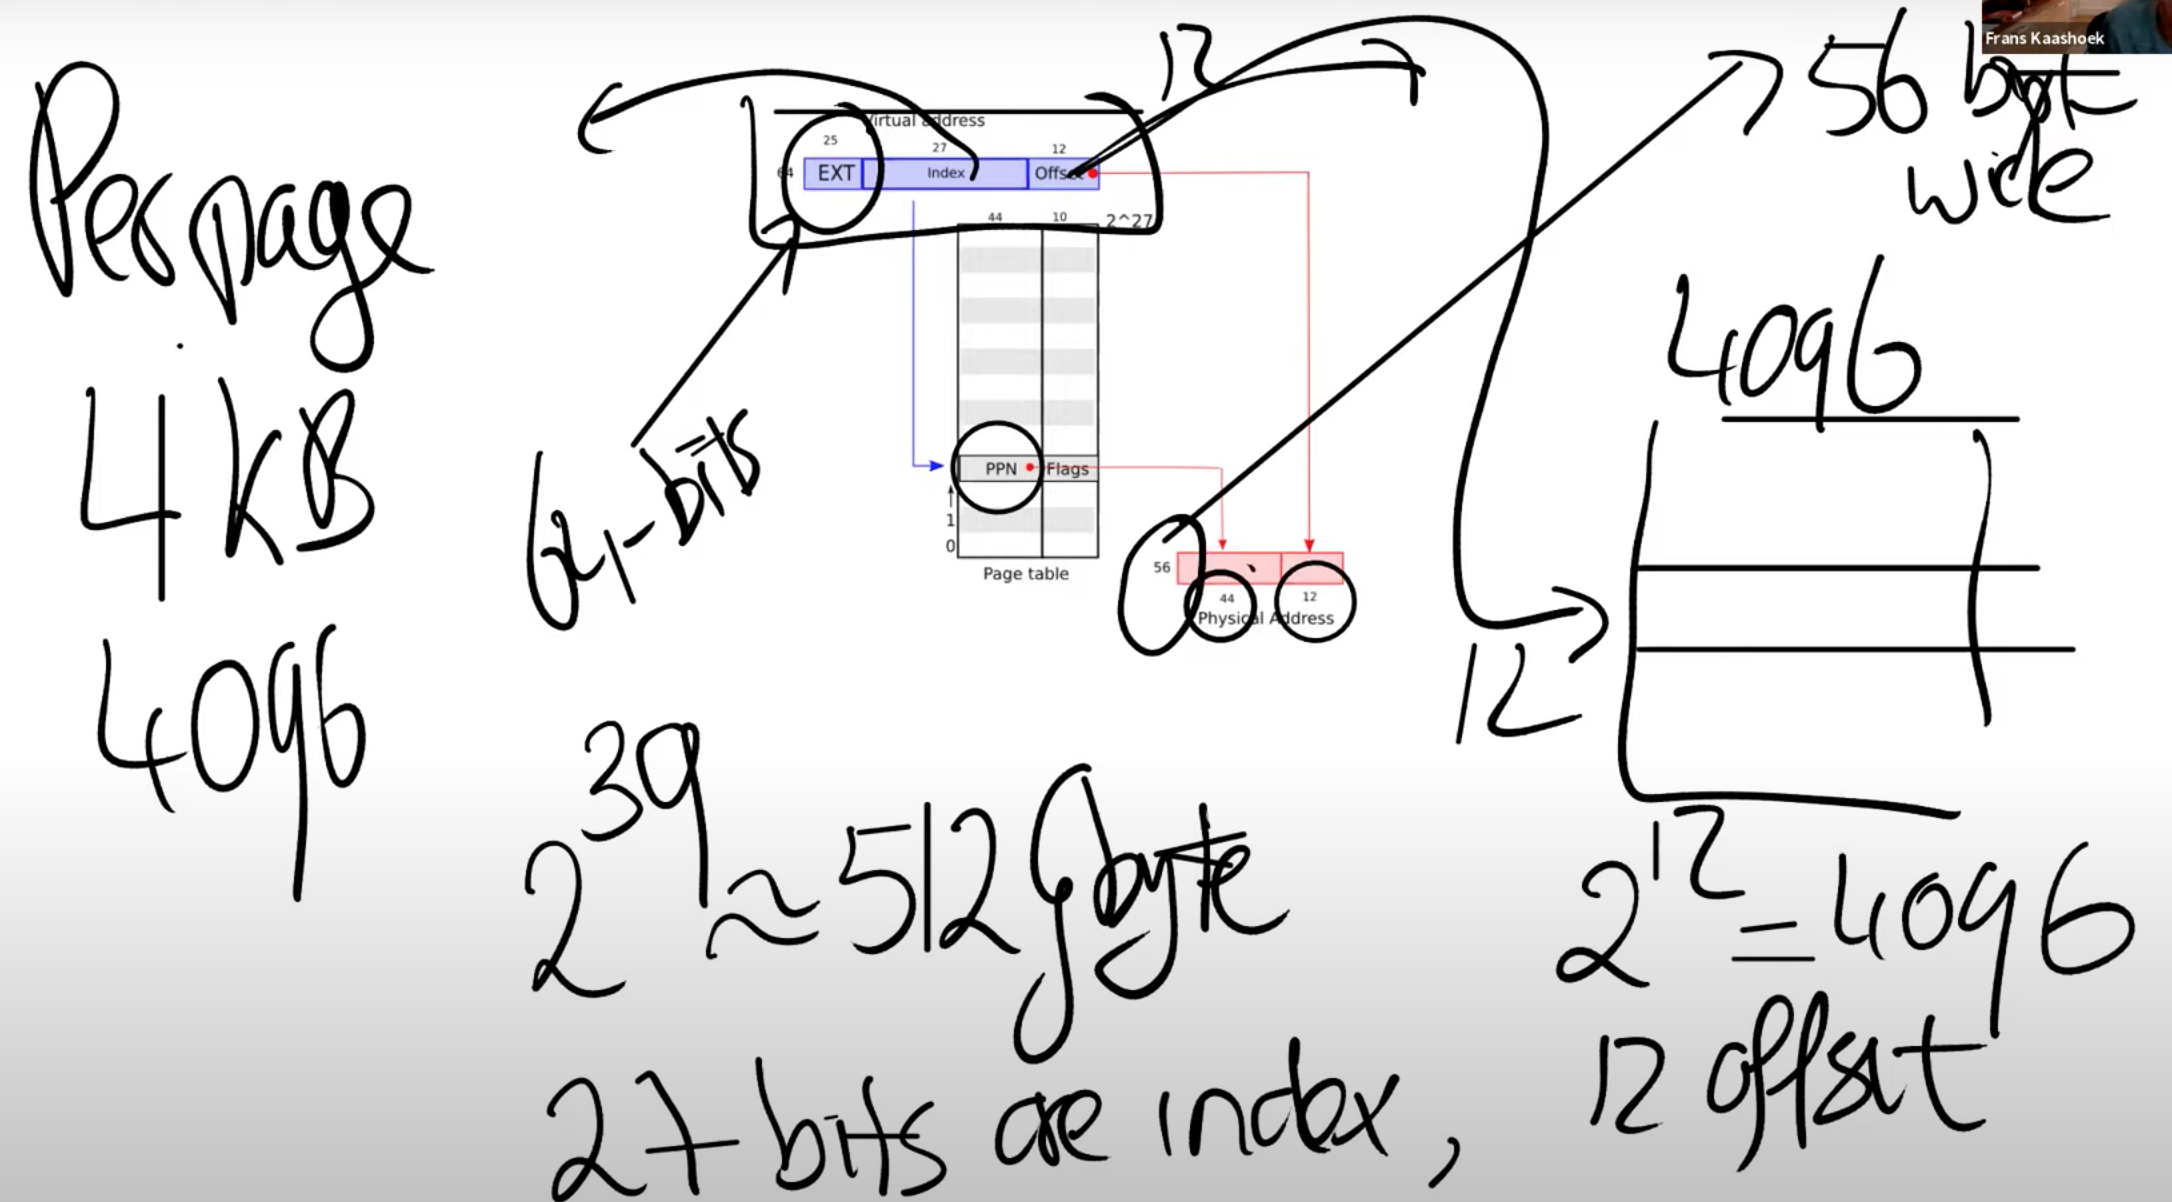 Frans Kaashoek
Per page
4 KB
4096
12
56
wide
Virtual address
25
27
12
64
EXT
Index
Offset
44
10
2^27
PPN
Flags
1
0
Page table
56
44
12
Physical Address
64-bits
4096
12
2^39 ≈ 512 Gbyte
2^12 = 4096
27 bits are index,
12 offset